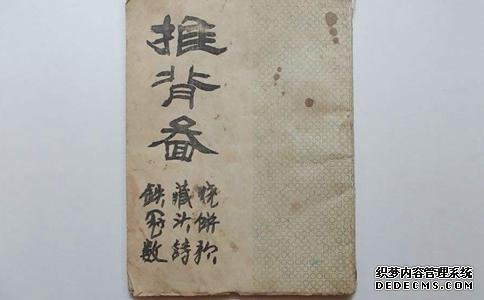 推背圖
烧餅歌
藏头詩
鉄冠數
织梦内容管理系统
DEDECMS.COM